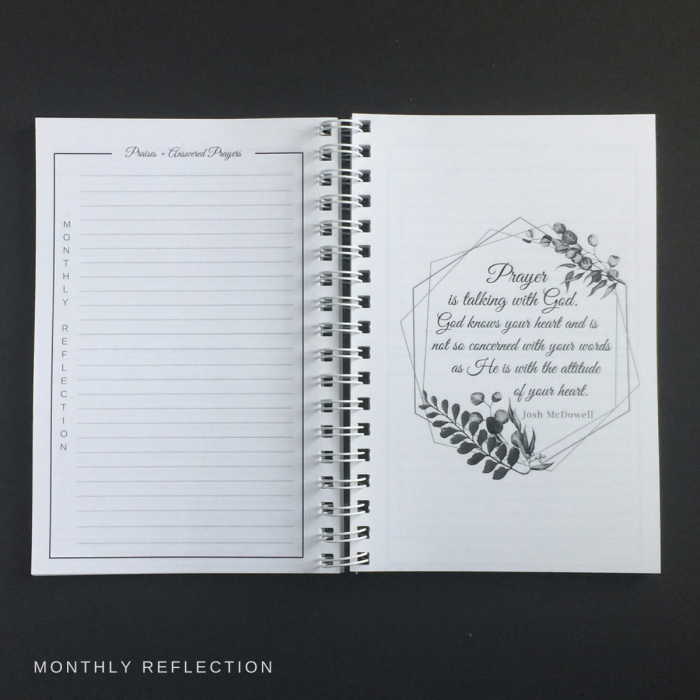 Praises + Answered Prayers
MONTHLY REFLECTION
Prayer
is talking with God.
God knows your heart and is
not so concerned with your words
as He is with the attitude
of your heart.
Josh McDowell
MONTHLY REFLECTION